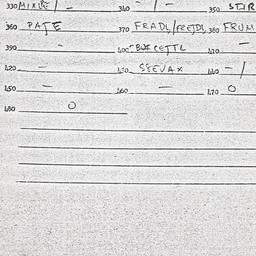 330 MIXLE / - 340 / - 350 STJR
360 PATE 370 FRADL/FREJDL 380 FRUM
390 - 400 BUICETTL 410 -
420 - 430 SIEVAX 440 - /
450 - 460 - 470 0
480 0